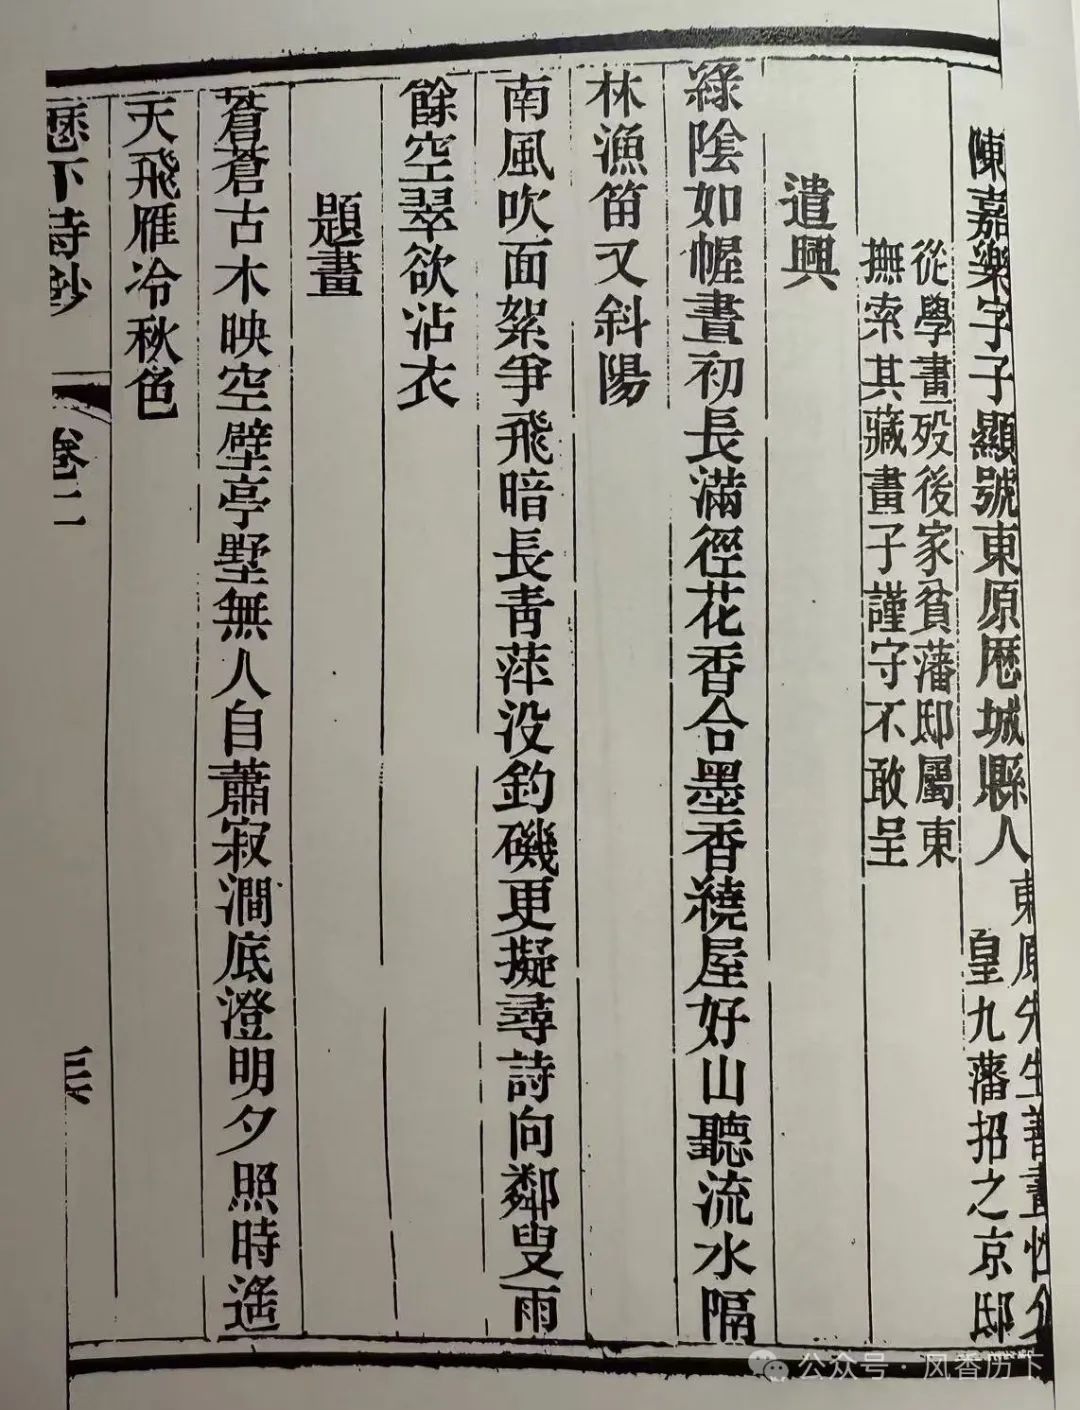 陳嘉樂字子顯號東原厯城縣人
東原先生善畫性介
皇九藩招之京邸
從學畫歿後家貧藩邸屬東
撫索其藏畫子謹守不敢呈
遣興
綠陰如幄晝初長滿徑花香合墨香繞屋好山聽流水隔
林漁笛又斜陽
南風吹面絮爭飛暗長青萍没釣磯更擬尋詩向鄰叟雨
餘空翠欲沾衣
題畫
蒼蒼古木映空壁亭墅無人自蕭寂澗底澄明夕照時遙
天飛雁冷秋色
厯下詩鈔
卷二
公众号·风香历下